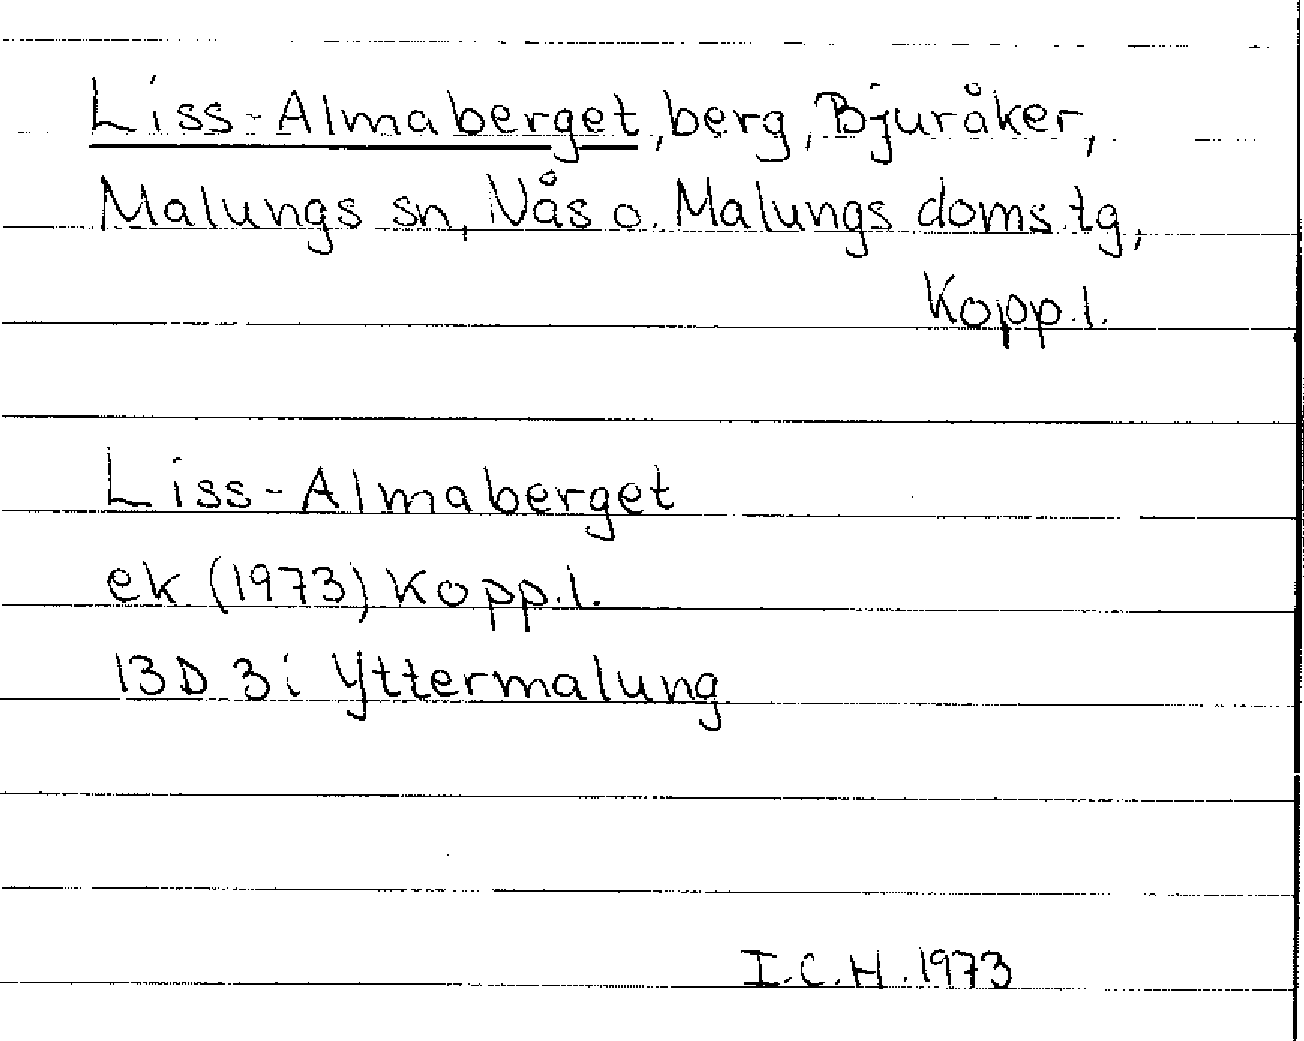 Liss-Almaberget, berg, Bjuråker,
Malungs sn, Nås o. Malungs doms.tg,
Kopp.l.
Liss-Almaberget
ek (1973) Kopp.l.
13D 3i Yttermalung
I.C.H. 1973